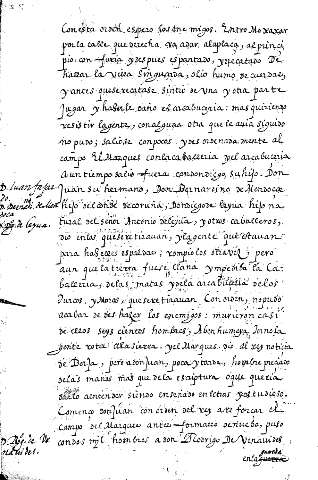 Con esta orden, espero los enemigos. Entro Moxaxar
por la calle que derecha va a dar a la plaça, al princi
pio con furia y despues espantado, y recatado de
hallar la villa sin guardia, olio humo de cuerdas,
y antes que se recatase sintio de una y otra parte
jugar y hazerle daño el arcabuceria: mas queriendo
resistir la gente, con alguna otra que le avia seguido
no pudo, saliose con pocos y desordenadamente al
campo. El Marques con la cavalleria y el arcabuceria
a un tiempo salio fuera con don diego su hijo, Don
Juan su hermano, Don Bernardino de Mendoça
hijo del conde de Coruña, Don diego de leyva hijo na
tural del señor Antonio de leyva, y otros cavalleros,
dio en los que se retiravan, y la gente que estavan
para hazelles espaldas; rompio los otra vez; pero
aun que la tierra fuese llana y impedida la Ca
balleria, de las matas y de la arcabuseria de los
Turcos, y Moros, que se retiravan con orden, no pudo
acabar de deshazer los enemigos: murieron casi
de ellos seys cientos hombres; Abenhumeya Jonesa
gente rota a la sierra y el Marques dio al rey noticia
de Berja, pero a don Juan, poca y tarde, hombre preciado
de las manos mas que de la escriptura o que queria
darlo a entender siendo enseñado en letras y estudioso.
Començo don Juan con orden del rey a reforçar el
campo del Marques antes formarlo de nuevo, puso
con dos mil hombres a don Rodrigo de Benavides
en la guarda
D. Juan faxar
do.
D. Bernar. de Men
doça
D. Dg. de leyva.
D. Rogi. de Be
navides.